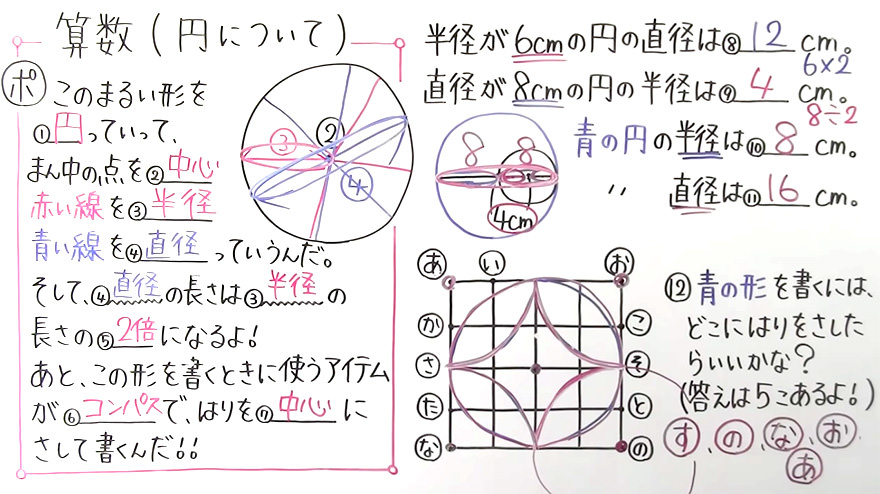 算数(円について)
ポ このまるい形を
①円っていって、
まん中の点を②中心
赤い線を③半径
青い線を④直径っていうんだ。
そして、④直径の長さは③半径の
長さの⑤2倍になるよ!
あと、この形を書くときに使うアイテム
が⑥コンパスで、はりを⑦中心に
さして書くんだ!!
③
②
④
半径が6cmの円の直径は⑧12cm。
6×2
直径が8cmの円の半径は⑨4cm。
8÷2
青の円の半径は⑩8cm。
〃 直径は⑪16cm。
8 8
4cm
あ い お
か こ
さ そ
た と
な の
⑫青の形を書くには、
どこにはりをさした
らいいかな?
(答えは5こあるよ!)
す、の、な、お、
あ